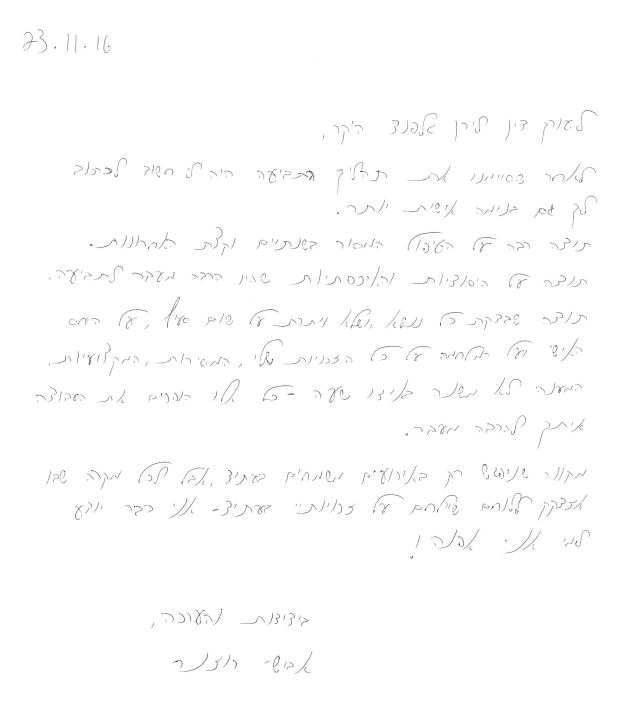 23.11.16
לעורך דין לירן אלפנד היקר,
לאחר שסיימנו את תהליך התביעה היה לי חשוב לכתוב
לך גם בנימה אישית יותר.
תודה רבה על הטיפול המסור בשנתיים וקצת האחרונות.
תודה על היסודיות והאיכפתיות שהיו הרבה מעבר לתביעה.
תודה שבדקת כל נושא ,ושלא ויתרת על שום סעיף, על היחס
האישי ועל הלחימה על כל הזכויות שלי, המסירות, המקצועיות,
המענה לא משנה באיזו שעה - כל אלו הופכים את העבודה
איתך להרבה מעבר.
מקווה שניפגש רק באירועים משמחים בעתיד, אבל לכל מקרה שבו
אזדקק ללוחם שילחם על זכויותיי בעתיד - אני כבר יודע
למי אני אפנה!
בידידות והערכה,
אבישי